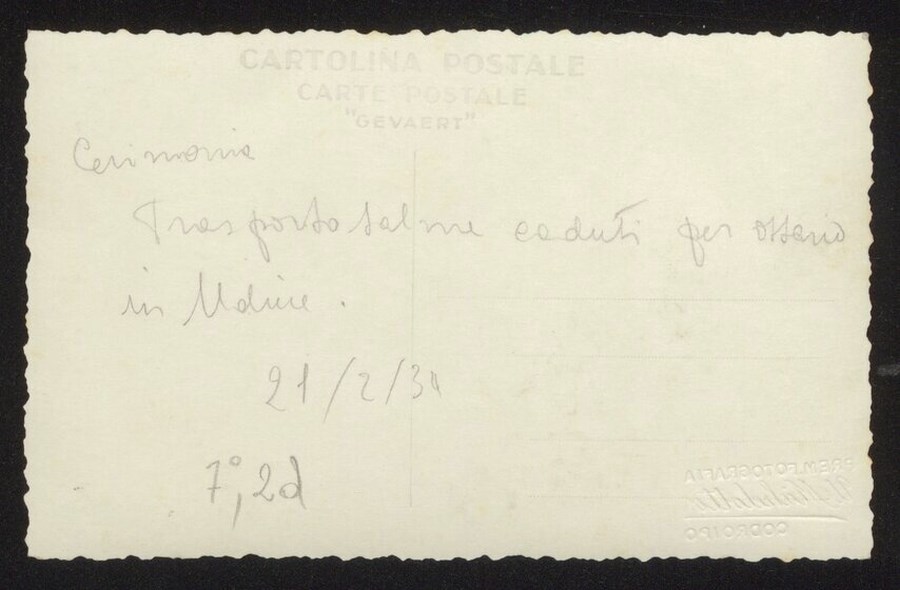 CARTOLINA POSTALE
CARTE POSTALE
"GEVAERT"
Cerimonia
Trasporto salme caduti per ossario
in Udine.
21/2/34
7°, 2d
PREM. FOTOGRAFIA
CODROIPO